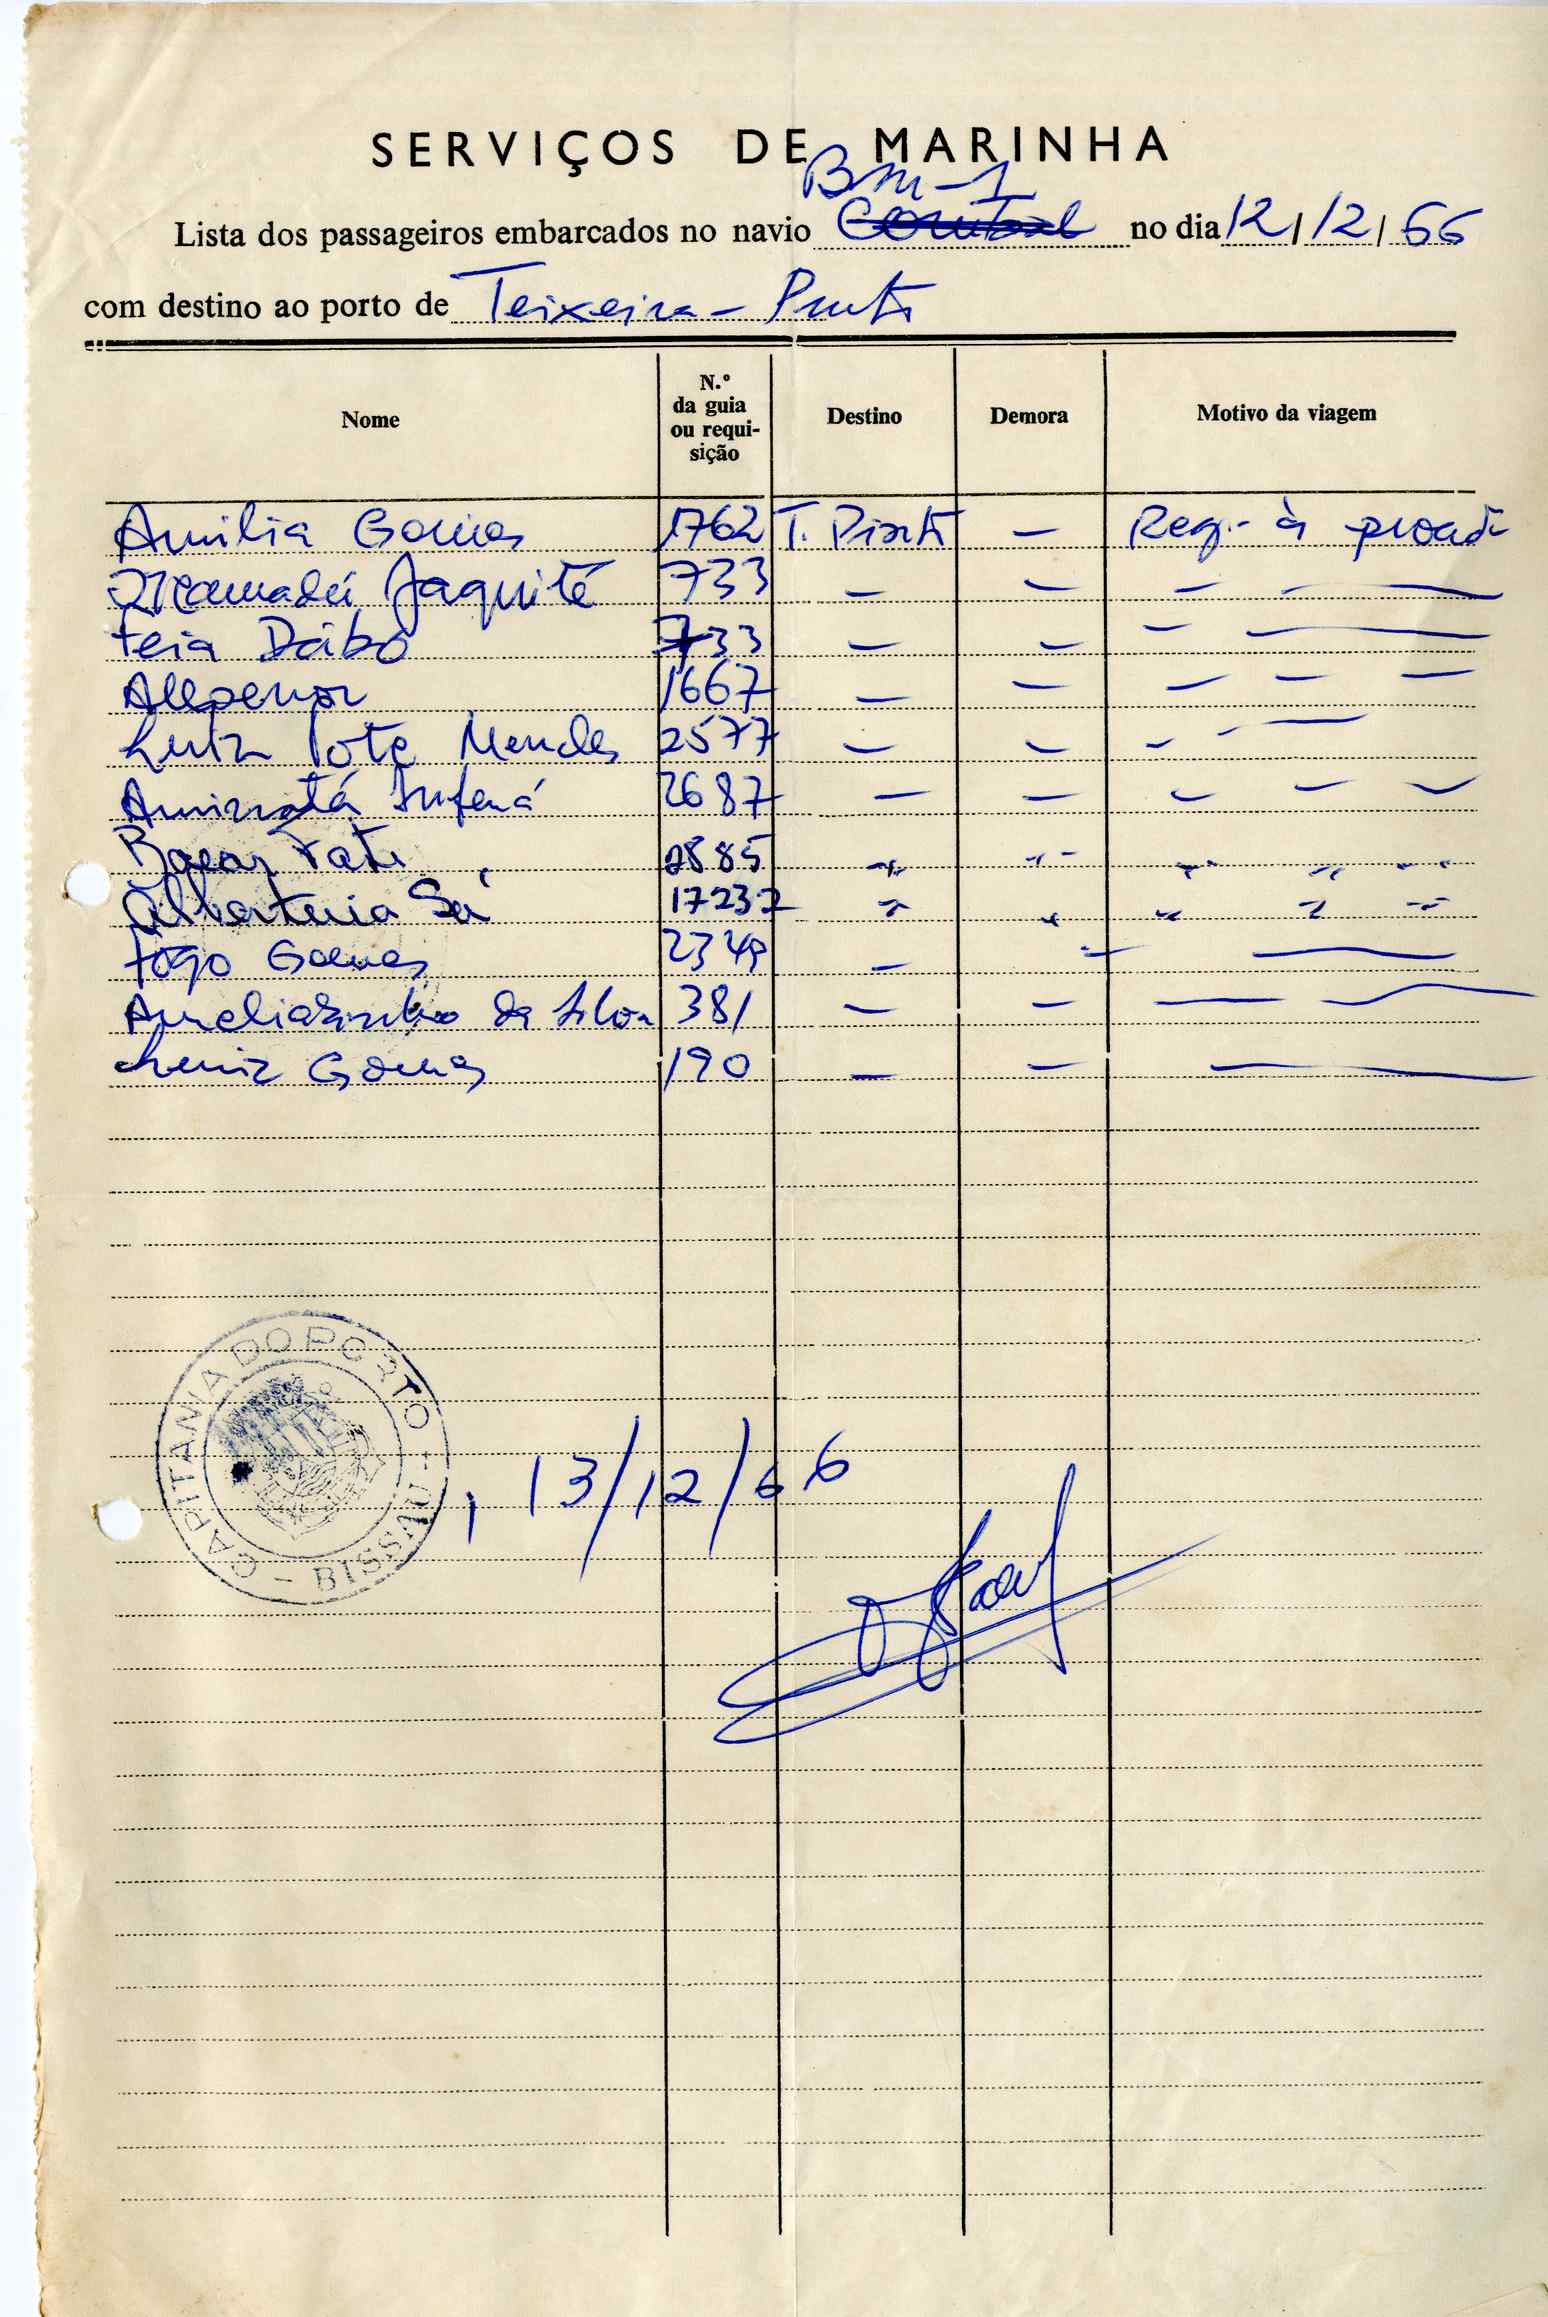 SERVIÇOS DE MARINHA
BM-1
Lista dos passageiros embarcados no navio Corubal no dia 12/12/66
com destino ao porto de Teixeira-Pinto
Nome N.º da guia ou requi-sição Destino Demora Motivo da viagem
Amilia Gomes 1762 T. Pinto — Reg. à
Mamadú Jaquité 733 — — — — —
Feia Dábo 733 — — — —
1667 — — — — —
Luiz Mendes 2577 — — — — —
Aminatá 2687 — — — — —
Bacar Fati 2885 " " " " "
Albertina Sá 17232 " " " " "
Gomes 2349 — — —
da Silva 381 — — — —
Luiz Gomes 190 — — —
CAPITANIA DO PORTO - BISSAU -
, 13/12/66